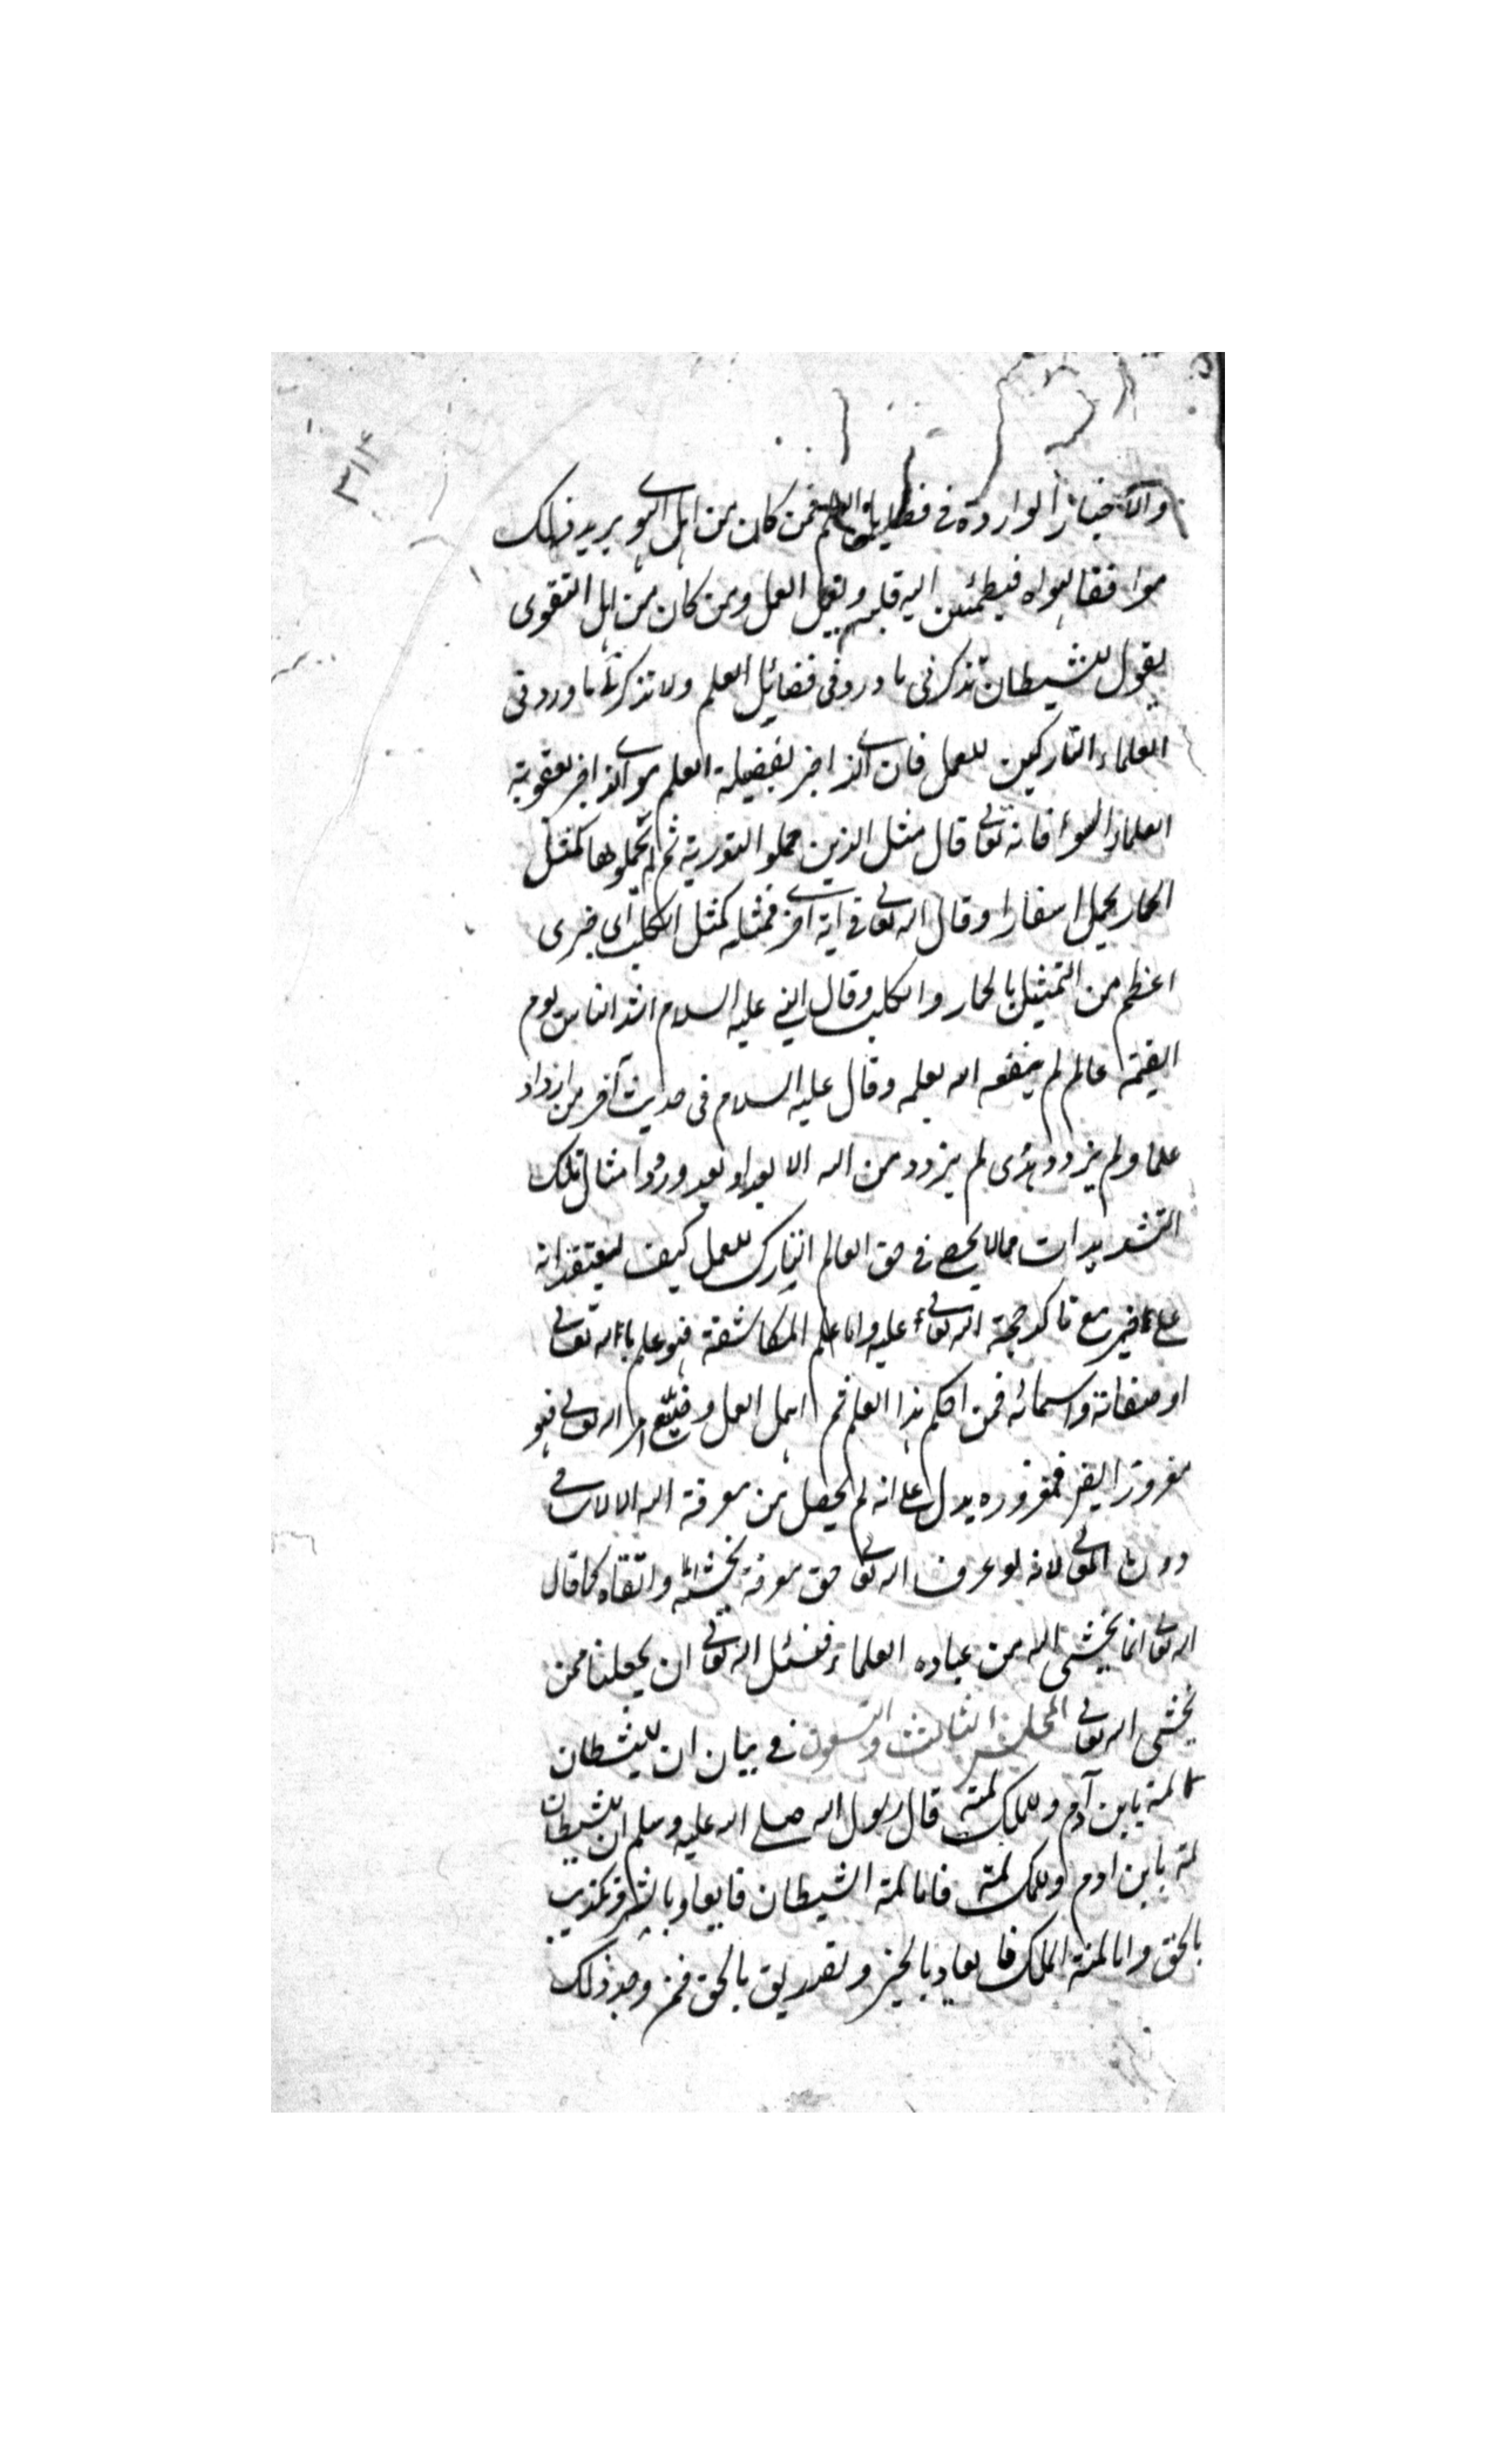 ٣١٣
والاخبار الواردة في فضايل العلم فمن كان من اهل الهوى يريد ذلك
موافقا لهواه فيطمئن اليه قلبه ويهمل العمل ومن كان من اهل التقوى
يقول للشيطان تذكرني ما ورد في فضائل العلم ولا تذكرني ما ورد في
العلماء التاركين للعمل فان الذي اخبر بفضيلة العلم هو الذي اخبر بعقوبة
العلماء السوء فانه تعالى قال مثل الذين حملوا التورية ثم لم يحملوها كمثل
الحمار يحمل اسفارا وقال الله تعالى في اية اخرى فمثله كمثل الكلب اي خزى
اعظم من التمثيل بالحمار والكلب وقال النبي عليه السلام اشد الناس يوم
القيمة عالم لم ينفعه الله بعلمه وقال عليه السلام في حديث آخر من ازداد
علما ولم يزدد هدى لم يزدد من الله الا بعدا وورود امثال تلك
التشديدات مما لا يحصى في حق العالم التارك للعمل كيف يعتقد انه
على خير مع تاكد حجة الله تعالى عليه واما علم المكاشفة فهو علم بالله تعالى
او صفاته واسمائه فمن احكم هذا العلم ثم اهمل العمل وضيع امر الله تعالى فهو
مغرور ايضا فغروره يدل على انه لم يحصل من معرفة الله الا الاسامي
دون المعاني لانه لو عرف الله تعالى حق معرفة يخشاه واتقاه كما قال
الله تعالى انما يخشى الله من عباده العلماء فنسئل الله تعالى ان يجعلنا ممن
يخشى الله تعالى المجلس الثالث والتسعون في بيان ان للشيطان
لمة بابن آدم وللملك لمة قال رسول الله صلى الله عليه وسلم ان للشيطان
لمة بابن ادم وللملك لمة فاما لمة الشيطان فايعاد بالشر وتكذيب
بالحق واما لمة الملك فايعاد بالخير وتصديق بالحق فمن وجد ذلك